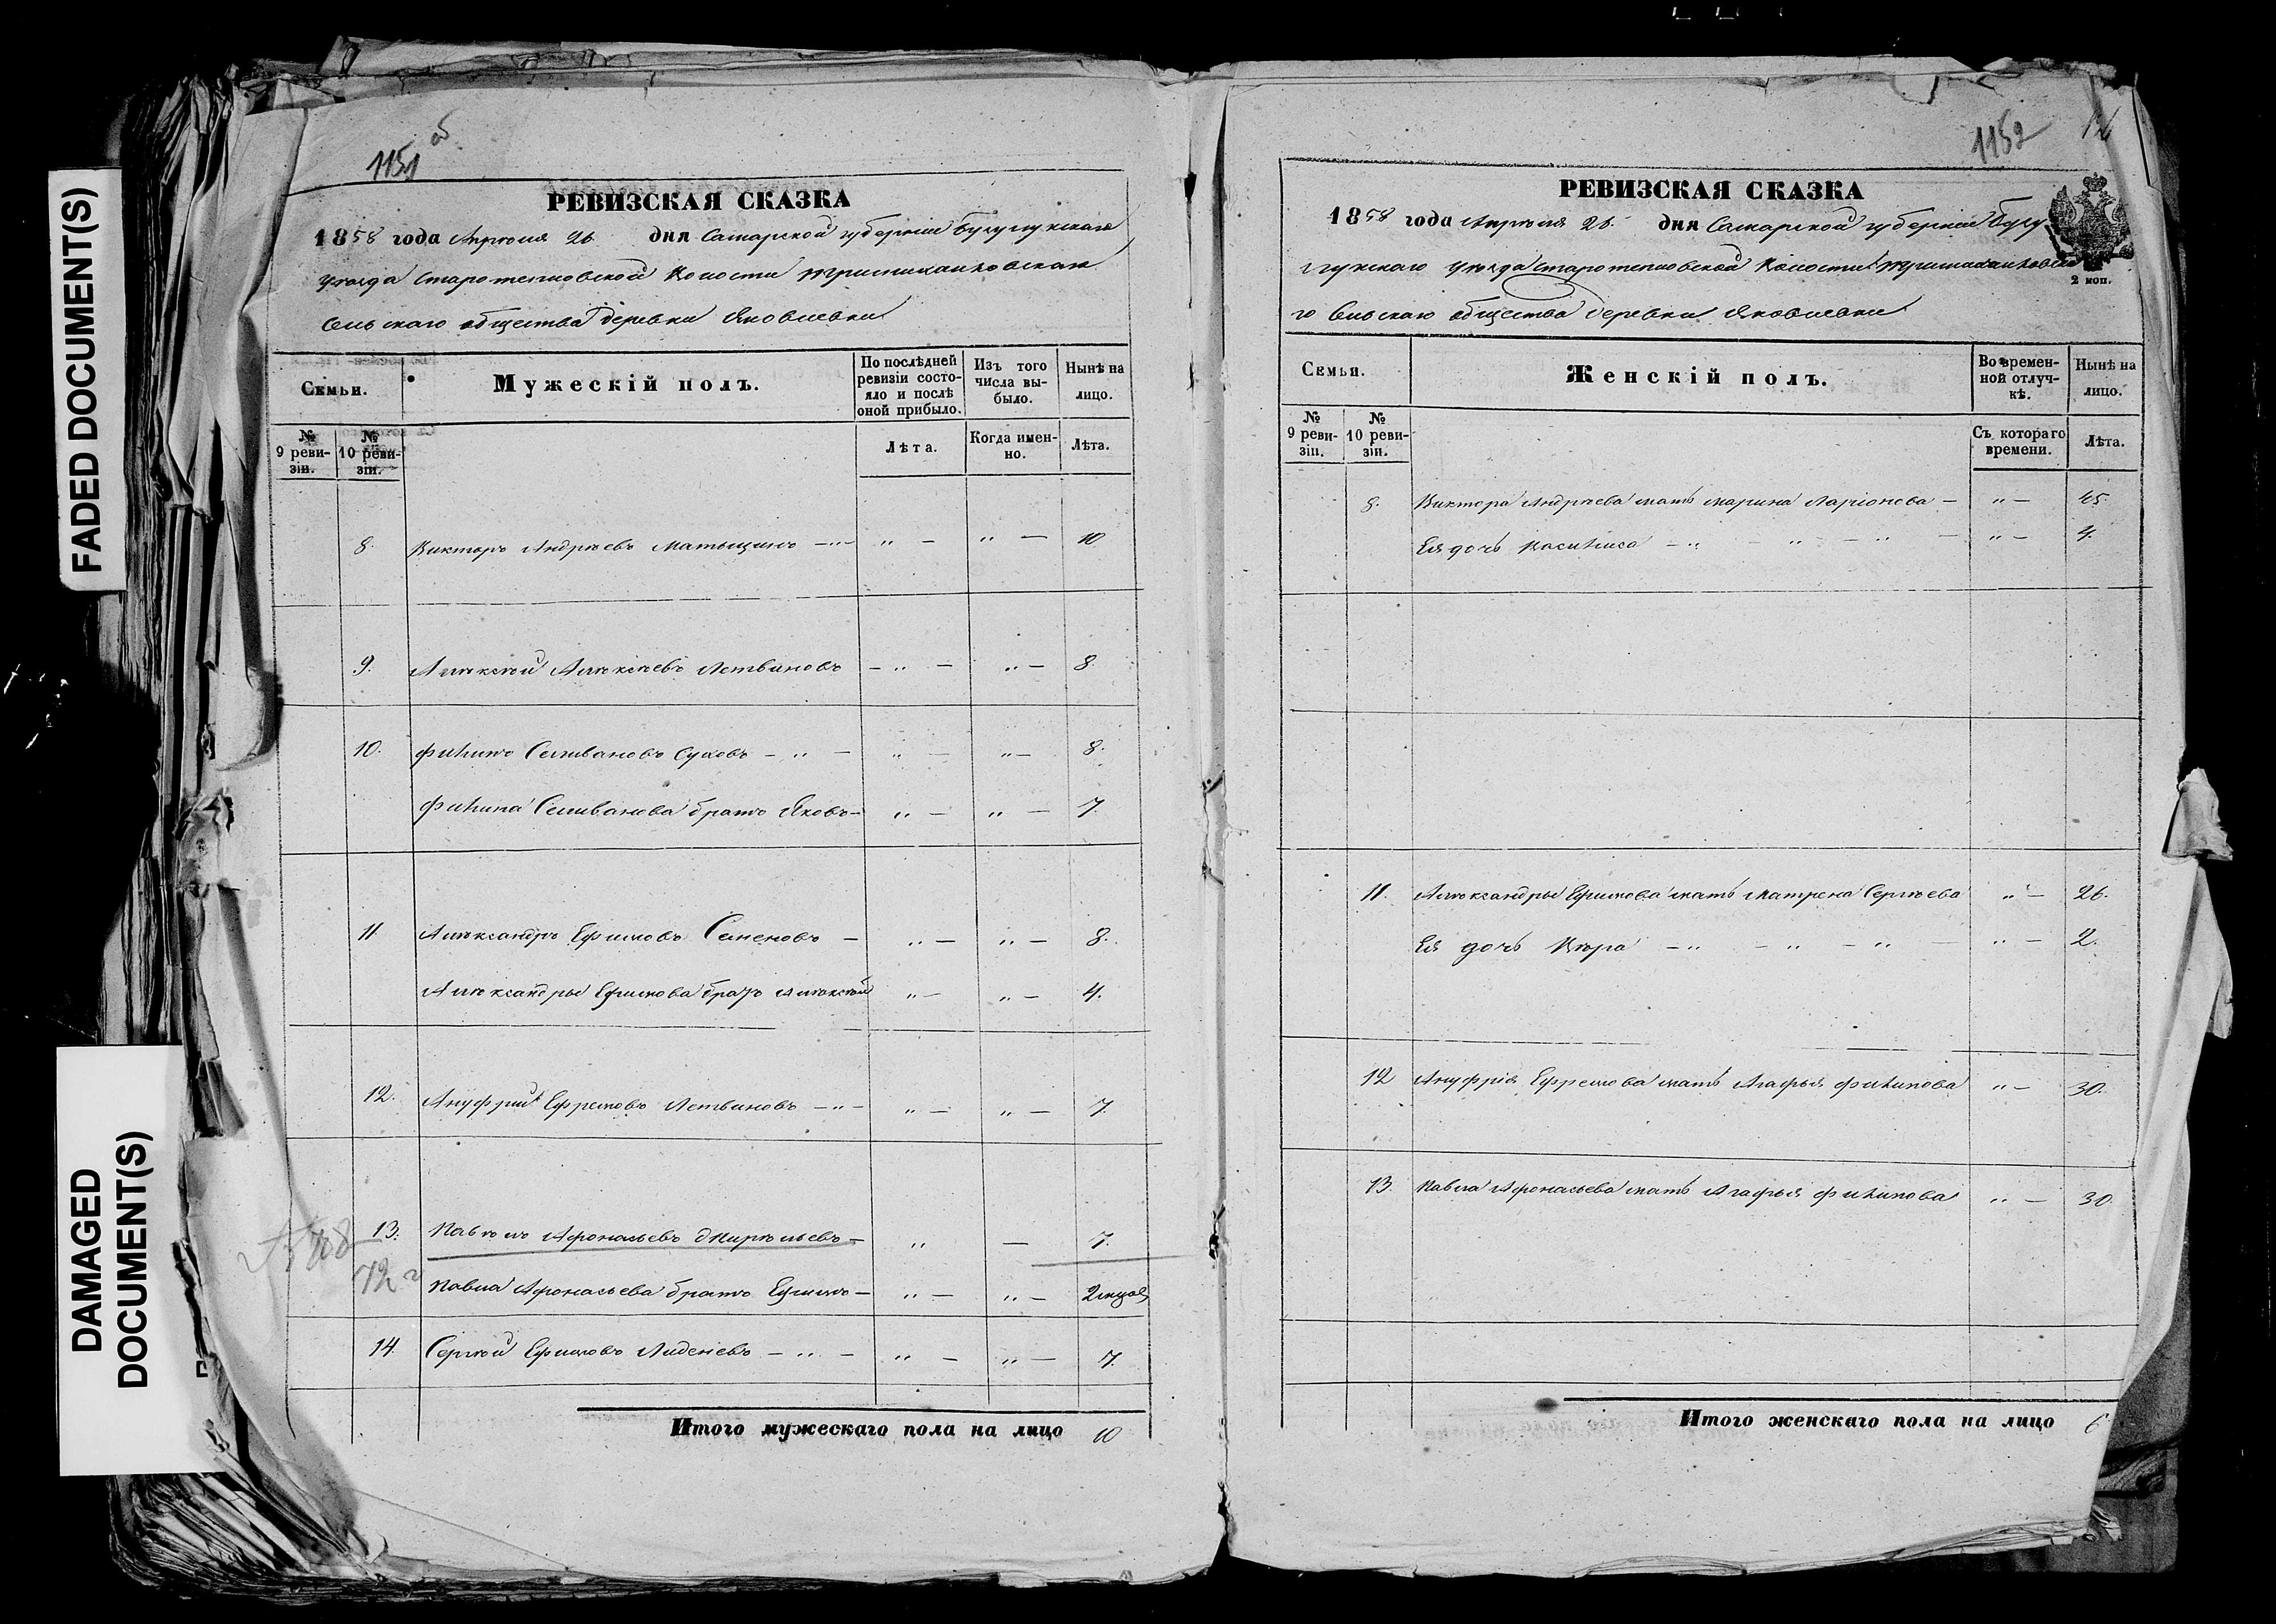 FADED DOCUMENT(S)
DAMAGED
DOCUMENT(S)
1151 об
РЕВИЗСКАЯ СКАЗКА
1858 года Апрѣля 26 дня Самарской губерніи Бугурусланскаго
уѣзда Старотепловской Волости
сельскаго общества деревни Яковлевки
Семьи.
Мужескій полъ.
По послѣдней ревизіи состояло и послѣ оной прибыло.
Изъ того числа выбыло.
Нынѣ на лицо.
№ 9 ревизіи.
№ 10 ревизіи.
Лѣта.
Когда именно.
Лѣта.
8. Викторъ Андрѣевъ Матыцинъ — „ — „ — „ — 10
9. Алѣксѣй Алѣксѣевъ Летвиновъ — „ — „ — 8.
10. Филипъ Селивановъ Суховъ — „ — „ — „ — 8.
Филипа Селиванова братъ Яковъ — „ — „ — 7.
11. Алѣксандръ Ефимовъ Семеновъ — „ — „ — 8.
Алѣксандры Ефимова братъ Алѣксѣй „ — „ — 4.
12. Ануфрій Ефремовъ Летвиновъ — „ — „ — „ — 7.
13. Павѣлъ Афонасьевъ — „ — 7.
Павла Афонасьева братъ Ефимъ — „ — „ — 2
14. Сергѣй Ефимовъ — „ — „ — „ — 7.
Итого мужескаго пола на лицо 10
1152
РЕВИЗСКАЯ СКАЗКА
1858 года Апрѣля 26. дня Самарской губерніи
уѣзда Старотепловской Волости
го Сельскаго общества деревни Яковлевки
2 коп.
Семьи.
Женскій полъ.
Во временной отлучкѣ.
Нынѣ на лицо.
№ 9 ревизіи.
№ 10 ревизіи.
Съ котораго времени.
Лѣта.
8. Виктора Андрѣева мать Марина Ларіонова — „ — 45.
Ея дочь Василиса — „ — „ — „ — „ — 4.
11. Алѣксандры Ефимова мать Матрена Сергѣева „ — 26.
Ея дочь Вѣра — „ — „ — „ „ — 2.
12 Ануфрія Ефремова мать Агафья Филипова „ — 30.
13. Павла Афонасьева мать Агафья Филипова „ — 30.
Итого женскаго пола на лицо 6